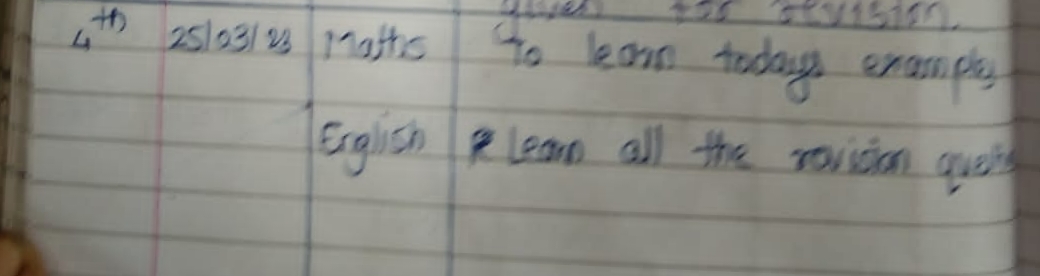 given for revision.
4th 25/03/23 Maths To learn todays example
English Learn all the revision